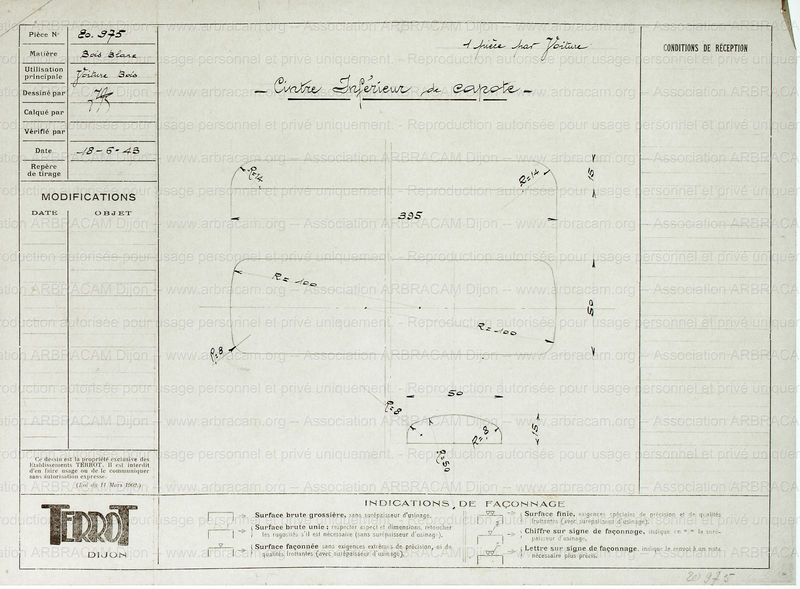 Pièce N° 20.975
Matière Bois Blanc
Utilisation principale Voiture Bois
Dessiné par
Calqué par
Vérifié par
Date 18-6-43
Repère de tirage
MODIFICATIONS
DATE OBJET
1 pièce par Voiture
Cintre Inférieur de capote
CONDITIONS DE RÉCEPTION
R=14
R=14
15
395
R=100
R=100
50
R=8
50
R=8
R=8
15
R=50
Ce dessin est la propriété exclusive des
Etablissements TERROT. Il est interdit
d'en faire usage ou de le communiquer
sans autorisation expresse.
(Loi du 11 Mars 1902.)
TERROT
DIJON
INDICATIONS DE FAÇONNAGE
Surface brute grossière, sans surépaisseur d'usinage.
Surface brute unie: respecter aspect et dimensions, retoucher
les rugosités s'il est nécessaire (sans surépaisseur d'usinage).
Surface façonnée sans exigences extrêmes de précision, ou de
qualités frottantes (avec surépaisseur d'usinage).
Surface finie, exigences spéciales de précision et de qualités
frottantes (avec surépaisseur d'usinage).
Chiffre sur signe de façonnage, indique en m/m la surépaisseur d'usinage.
Lettre sur signe de façonnage, indique le renvoi à un texte
nécessaire plus précis.
20975
www.arbracam.org -- Association ARBRACAM Dijon -- www.arbracam.org
Reproduction autorisée pour usage personnel et privé uniquement.